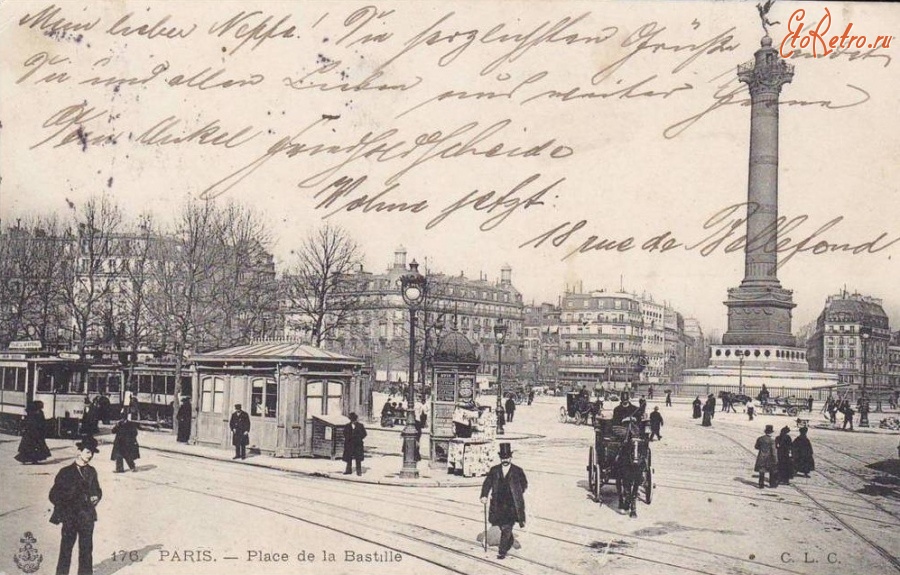 Mein lieber Neffe! Die herzlichsten Grüße sendet
Dir und allen Lieben aus weiter Ferne
Dein Onkel
Wohne jetzt:
18 rue de Bellefond.
EtoRetro.ru
176. PARIS. — Place de la Bastille
C. L. C.